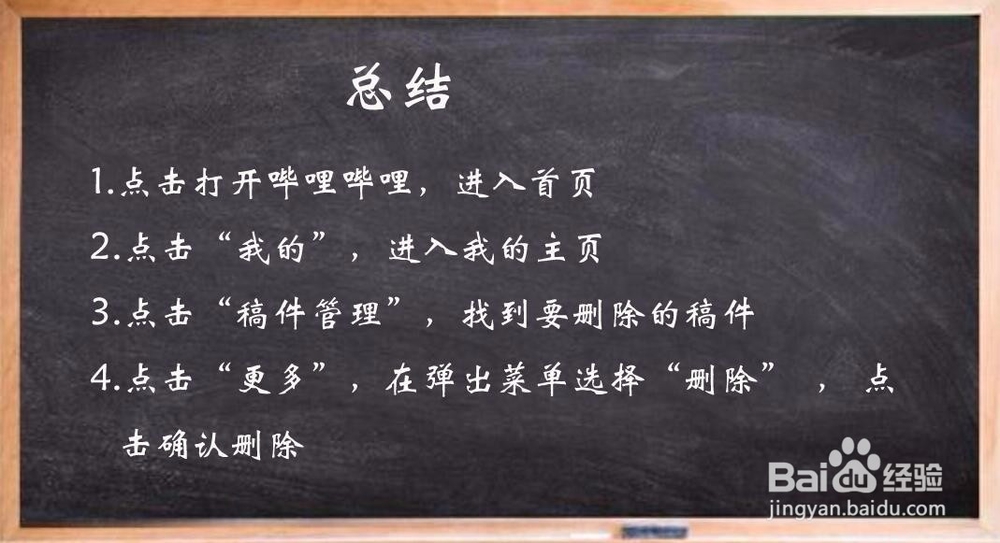 总结
1.点击打开哔哩哔哩，进入首页
2.点击“我的”，进入我的主页
3.点击“稿件管理”，找到要删除的稿件
4.点击“更多”，在弹出菜单选择“删除” ， 点
击确认删除
Baidu经验
jingyan.baidu.com